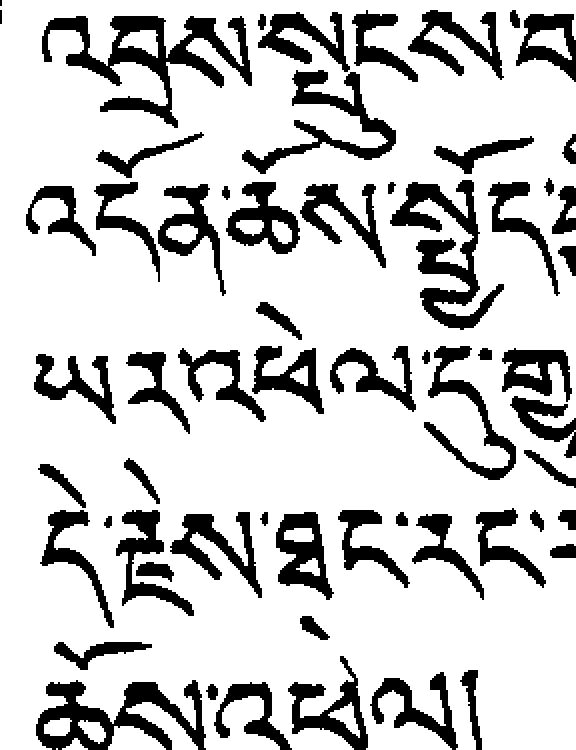 འབྲས་སྤུངས་
འདོན་ཆོས་སྤྱོད་
ཡར་འཕེལ་དུ་
དེ་རྗེས་
ཆོས་འཕེལ།